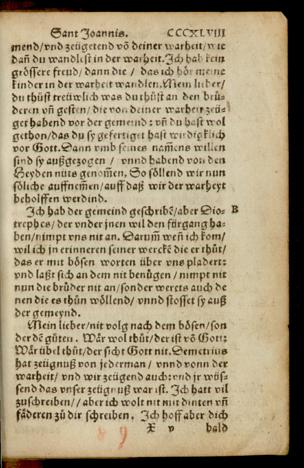 Sant Joannis. CCCXLVIII
mend/vnd zeügetend vō deiner warheit/wie
dañ du wandlest in der warheit. Ich hab kein
grössere freud/dann die / das ich hör meine
kinder in der warheit wandlen. Mein lieber/
du thůst treüwlich was du thůst an den brů-
deren vñ gesten/die von deiner warheit zeüg-
get habend vor der gemeind: vñ du hast wol
gethon/das du sy gefertiget hast wirdigklich
vor Gott. Dann vmb seines namens willen
sind sy außgezogen / vnnd habend von den
Heyden nüts genom̄en. So söllend wir nun
söliche auffnem̄en/auff daß wir der warheyt
beholffen werdind.
Ich hab der gemeind geschribē/aber Dio- B
trephes/der vnder jnen wil den fürgang ha-
ben/nimpt vns nit an. Darum̄ weñ ich kom̄/
wil ich jn erinneren seiner werckē die er thůt/
das er mit bösen worten über vns pladert:
vnd laßt sich an dem nit benůgen / nimpt nit
nun die brůder nit an/sonder werets auch de
nen die es thůn wöllend/ vnnd stosset sy auß
der gemeynd.
Mein lieber/nit volg nach dem bösen/son
der dē gůten. Wär wol thůt/der ist vō Gott:
Wär übel thůt/der sicht Gott nit. Demetrius
hat zeügnuß von jederman/ vnnd vonn der
warheit/ vnd wir zeügend auch: vnd jr wüs-
send das vnser zeügnuß war ist. Ich hatt vil
zuschreiben/ aber ich wolt nit mit dinten vñ
fäderen zů dir schreiben. Ich hoff aber dich
X v bald